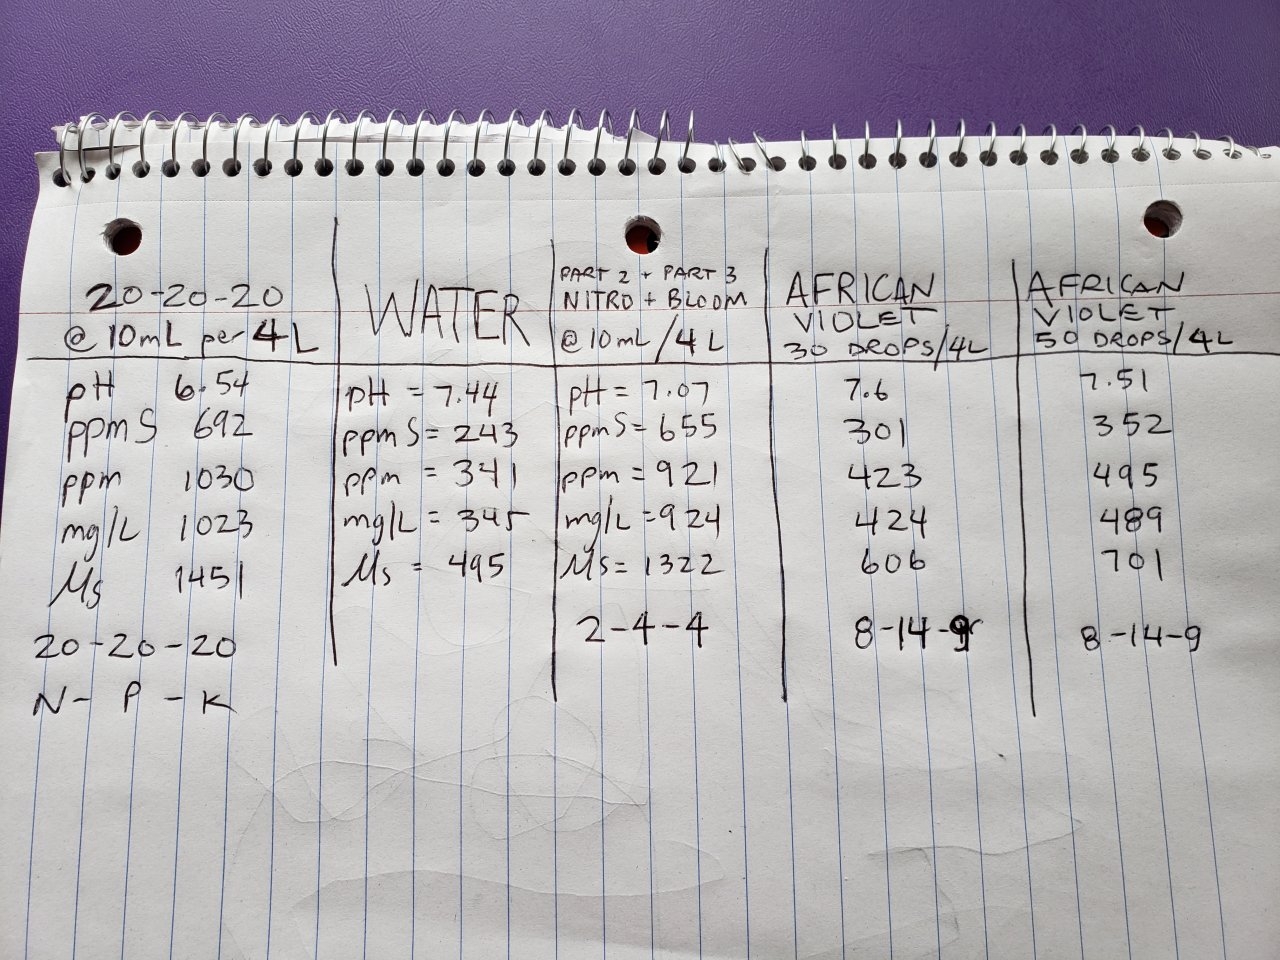 20-20-20
@ 10mL per 4L
pH 6.54
ppm S 692
ppm 1030
mg/L 1023
Ms 1451
20-20-20
N - P - K
WATER
pH = 7.44
ppm S = 243
ppm = 341
mg/L = 345
Ms = 495
PART 2 + PART 3
NITRO + BLOOM
@ 10mL/4L
pH = 7.07
ppm S = 655
ppm = 921
mg/L = 924
Ms = 1322
2-4-4
AFRICAN
VIOLET
30 DROPS/4L
7.6
301
423
424
606
8-14-9
AFRICAN
VIOLET
50 DROPS/4L
7.51
352
495
489
701
8-14-9